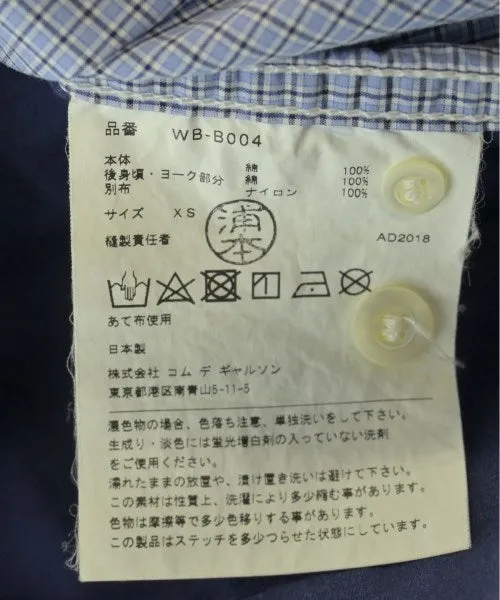 品番 WB-B004
本体 綿 100%
後身頃・ヨーク部分 綿 100%
別布 ナイロン 100%
サイズ XS
浦本
縫製責任者 AD2018
あて布使用
日本製
株式会社 コム デ ギャルソン
東京都港区南青山5-11-5
濃色物の場合、色落ち注意、単独洗いをして下さい。
生成り・淡色には蛍光増白剤の入っていない洗剤
をご使用ください。
濡れたままの放置や、漬け置き洗いは避けて下さい。
この素材は性質上、洗濯により多少縮む事があります。
色物は摩擦等で多少色移りする事があります。
この製品はステッチを多少つらせた状態にしています。